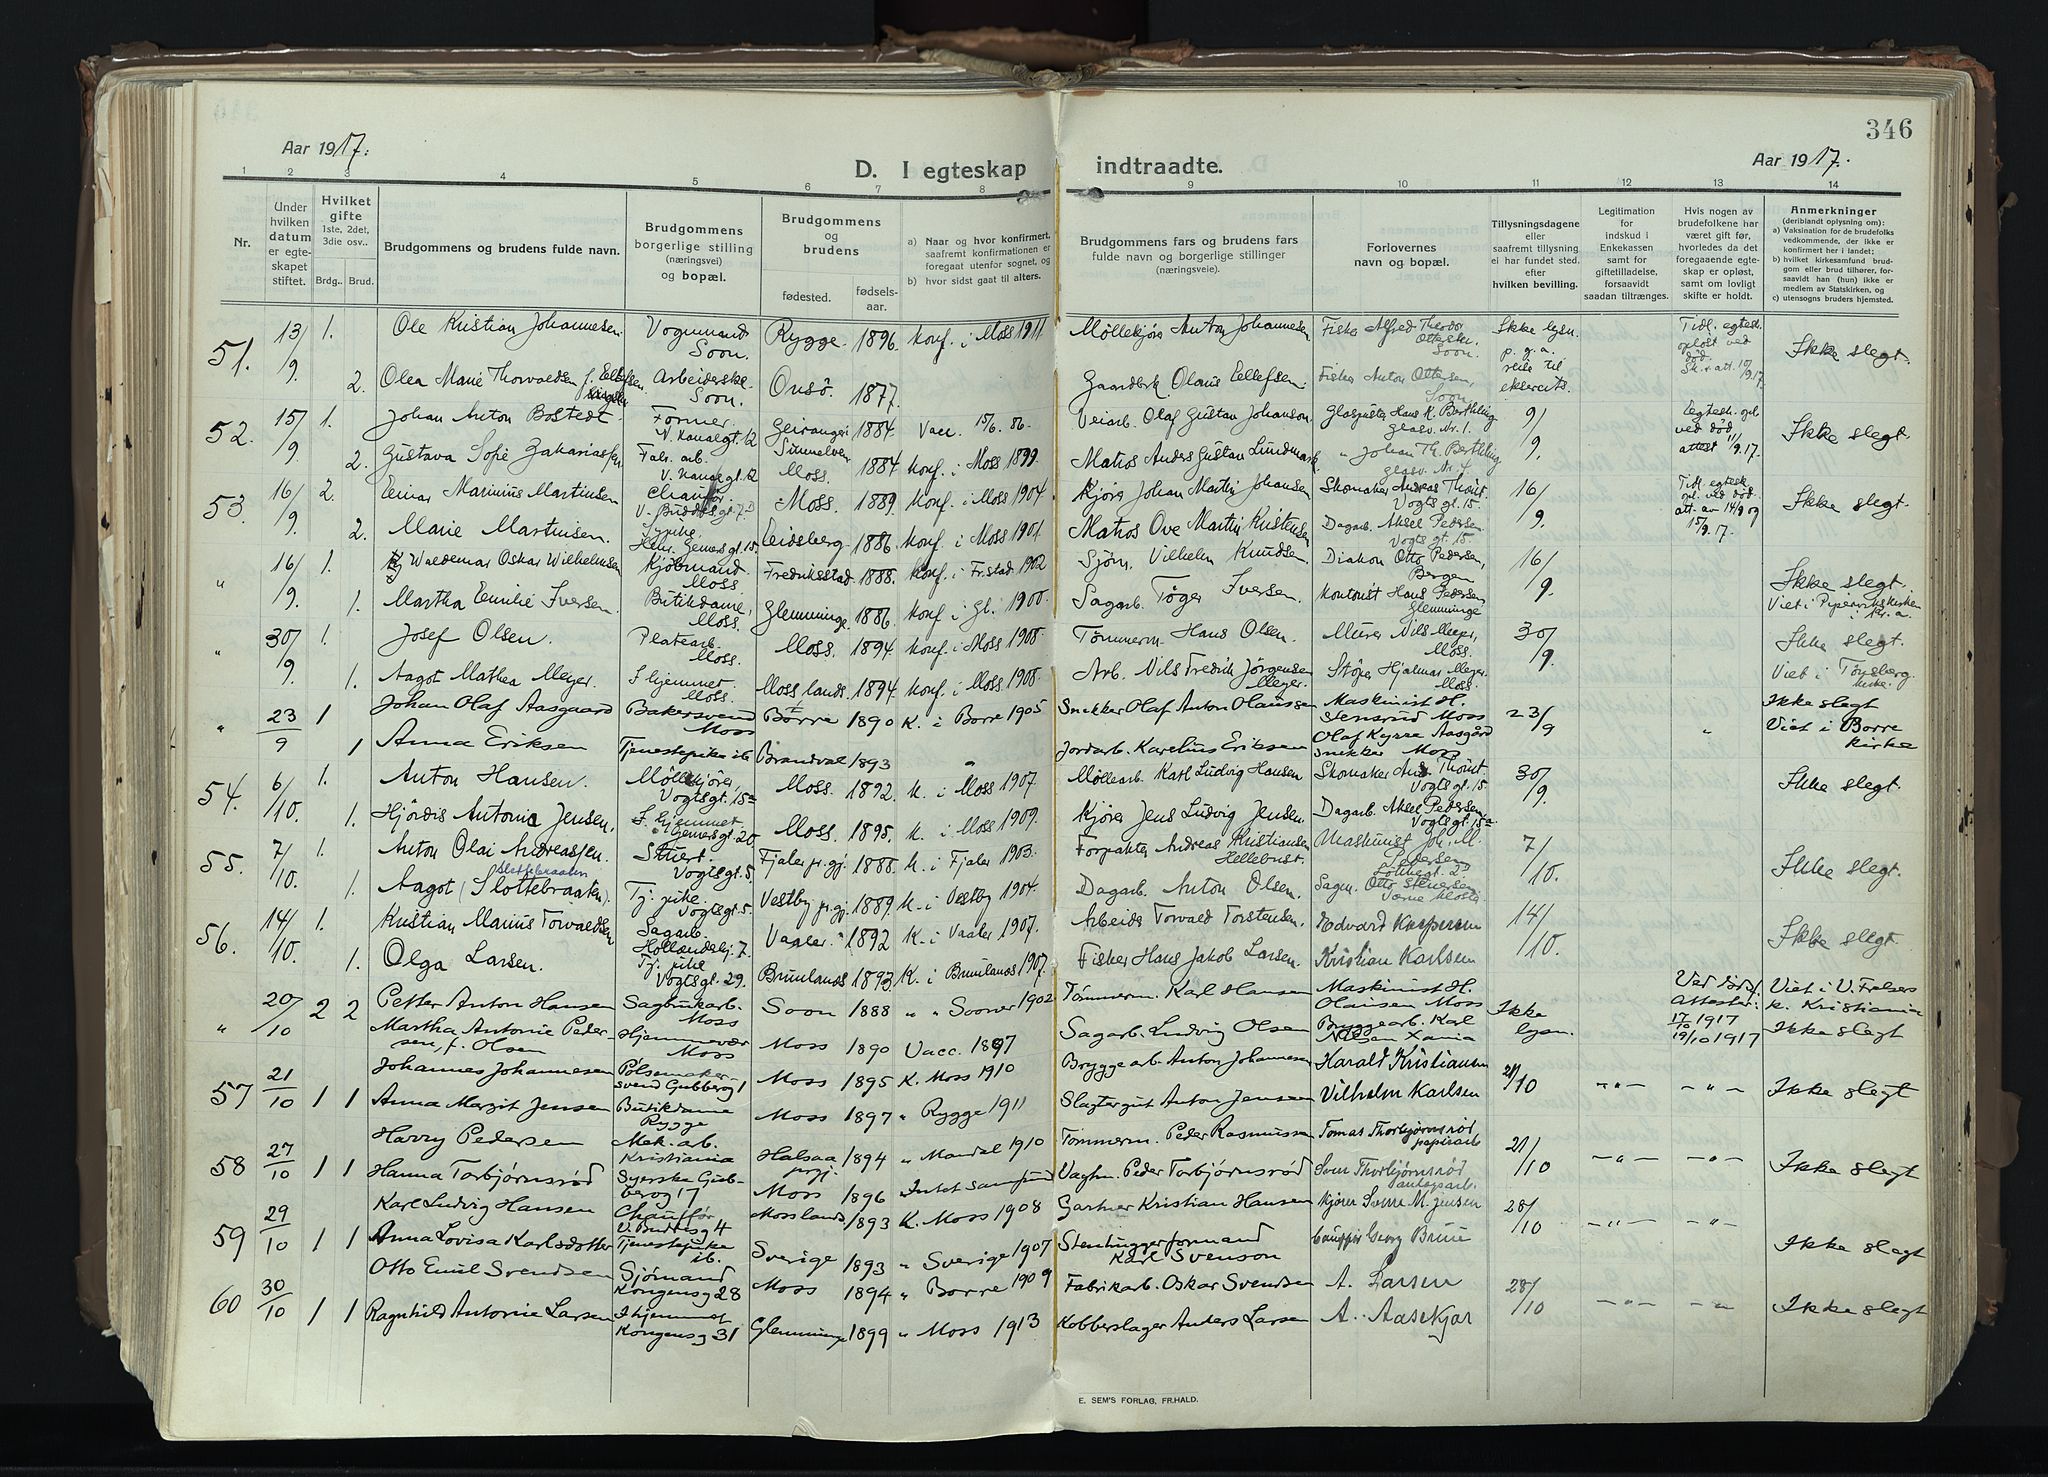 346
Aar 1917.
D. I egteskap indtraadte.
Aar 1917.
1 2 3 4 5 6 7 8 9 10 11 12 13 14
Nr.
Under hvilken datum er egteskapet stiftet.
Hvilket gifte 1ste, 2det, 3die osv..
Brdg.. Brud.
Brudgommens og brudens fulde navn.
Brudgommens borgerlige stilling (næringsvei) og bopæl.
Brudgommens og brudens
fødested. fødsels-aar.
a) Naar og hvor konfirmert, saafremt konfirmationen er foregaat utenfor sognet, og
b) hvor sidst gaat til alters.
Brudgommens fars og brudens fars fulde navn og borgerlige stillinger (næringsveie).
Forlovernes navn og bopæl.
Tillysningsdagene eller saafremt tillysning ei har fundet sted. efter hvilken bevilling.
Legitimation for indskud i Enkekassen samt for giftetilladelse, forsaavidt saadan tiltrænges.
Hvis nogen av brudefolkene har været gift før, hvorledes da det foregaaende egteskap er opløst, samt om lovligt skifte er holdt.
Anmerkninger (deriblandt oplysning om):
a) Vaksination for de brudefolks vedkommende, der ikke er konfirmert her i landet;
b) hvilket kirkesamfund brudgom eller brud tilhører, forsaavidt han (hun) ikke er medlem av Statskirken, og
c) utensogns bruders hjemsted.
51. 13/9. 1. Ole Kristian Johannesen. Vognmand Soon. Rygge. 1896. Konf. i Moss 1911. Møllekjører Anton Johannesen Fisker Alfred Theodor Ottersen. Soon. Ikke lysn. p. g. a. reise til eksercits. Tidl. egtesk. opløst ved død. Sk. att. 10/9.17. Ikke slegt.
2. Olea Marie Thorvaldsen f. Ellefsen. Arbeiderske. Soon. Onsö. 1877. Gaardbrk. Olaus Ellefsen. Fisker Anton Ottersen, Soon
52. 15/9 1. Johan Anton Bostedt. Former N. Kanalgt. 12 Geiranger 1884. Vacc. 15/6. 86. Veiarb. Olaf Gustav Johanson. Glaspuster Hans K. Berthling glasv. Nr. 1. 9/9. Egtesk. opl. ved død, attest 11/9.17. Ikke slegt.
2. Gustava Sofie Zakariassen Fabr. arb. V. Kanalgt. 12 Moss. 1884. Konf. i Moss 1899. Matros Anders Gustav Lundmark " Johan Th. Berthling glasv. Nr. 4
53. 16/9. 2. Einar Marinius Martinsen Chauffør. V. Buddes gt. 7D Moss. 1889. Konf. i Moss 1904. Kjører Johan Martin Johansen Skomaker Andreas Thoust. Vogts gt. 15. 16/9. Tidl. egtesk. opl. ved død. att. av 14/9 09 15/9.17. Ikke slegt.
2. Marie Martinsen. Sypike, Henr. Gerners gt. 15. Eidsberg. 1886. Konf. i Moss 1901. Matros Ove Martin Kristensen Dagarb. Aksel Pedersen Vogts gt. 15.
" 16/9. 1. Waldemar Oskar Wilhelmsen Kjøbmand. Moss Fredriksstad 1888. Konf. i Fr.stad 1902 Sjøm. Vilhelm Knudsen. Diakon Otto Pedersen, Bergen 16/9. Ikke slegt. Viet i Pipervikskirken i Kr.a.
1. Martha Emilie Iversen. Butikdame, Moss. Glemminge. 1886. Konf. i Gl. 1900. Sagarb. Töger Iversen. Kontorist Hans Pedersen, Glemminge
" 30/9 1. Josef Olsen. Platearb. Moss. Moss. 1894. Konf. i Moss 1908. Tømmerm. Hans Olsen. Murer Nils Meyer, Moss. 30/9. Ikke slegt. Viet i Tönsberg kirke.
1. Aagot Mathea Meyer. I hjemmet Moss. Moss lands. 1894. Konf. i Moss. 1908. Arb. Nils Fredrik Jørgensen Meyer. Støper Hjalmar Meyer. Moss.
" 23/9 1 Johan Olaf Aasgaard Bakersvend Moss Börre 1890 K. i Borre 1905 Snekker Olaf Anton Olaussen Maskinist H. Jensrud Moss 23/9 " Ikke slegt Viet i Borre kirke
1 Anna Eriksen Tjenestepike ib. Brandval 1893 " Jordarb. Karelius Eriksen Olaf Kyrre Aasgård snekker Moss
54. 6/10. 1. Anton Hansen. Møllekjører, Vogtsgt. 15a Moss. 1892. K. i Moss 1907. Møllearb. Karl Ludvig Hansen Skomaker And. Thoust. Vogts gt. 15. 30/9. Ikke slegt.
1. Hjördis Antonie Jensen, I hjemmet Gernersgt. 20. Moss. 1895. K. i Moss 1909. Kjører Jens Ludvig Jensen. Dagarb. Aksel Pedersen Vogts gt. 15a
55. 7/10. 1. Anton Olai Andreassen. Stuert. Vogtsgt. 5. Fjaler pr.gj. 1888. K. i Fjaler 1903. Forpakter Andreas Kristiansen Hellebust. Maskinist Joh. M. Pedersen 7/10. Ikke slegt.
1. Aagot (Slottebraaten). Tj. pike Vogtsgt. 5. Vestby pr.gj. 1889. K. i Vestby 1904. Dagarb. Anton Olsen. Sagm. Otto Stenersen
56. 14/10. 1. Kristian Marius Torvaldsen Sagarb. Hollenderbj. 7. Vaaler. " 1892 K. i Vaaler 1907. Arbeider Torvald Torstensen. Edvard Kaspersen 14/10. Ikke slegt.
1. Olga Larsen. Tj. pike Vogtsgt. 29. Brunlanæs 1893 K. i Brunlanæs 1907. Fisker Hans Jakob Larsen. Kristian Karlsen
" 20/10 2 2 Petter Anton Hansen Sagbrukarb. Moss Soon 1888 " " Sooner 1902 Tømmerm. Karl Hansen Maskinist H. Hansen Moss Ikke lysn. Ved død. Attester: 17/10 1917 19/10 1917 Viet i V. Frelsers k. Kristiania Ikke slegt
Martha Antonie Pedersen, f. Olsen Hjemmevær. Moss Moss 1890 Vacc. 1897 Sagarb. Ludvig Olsen Bryggearb. Karl Nilsen Xania
57 21/10 1 1 Johannes Johannesen Pølsemakersvend Gubberog 1 Moss 1895 K. Moss 1910 Bryggearb. Anton Johannesen Harald Kristiansen 21/10 — " — — " — Ikke slegt
Anna Margit Jensen Butikdame Rygge Moss 1897 " Rygge 1911 Slagtergut Anton Jensen Vilhelm Karlsen
58 27/10 1 1 Harry Pedersen Mek. arb. Kristiania Halsaa prgj. 1894 " Mandal 1910 Tømmerm. Peder Rasmussen Tomas Thorbjørnsrød papirarb. 21/10 — " — — " — Ikke slegt
Hanna Torbjørnsrød Syerske Gubberog 17 Moss 1896 " Intet samfund Vagtm. Peder Torbjørnsrød Sven Thorbjørnsrød
59 29/10 1 1 Karl Ludvig Hansen Chauffør V. Buddesg 4 Mosslands. 1893 K. Moss 1908 Gartner Kristian Hansen Kjører Sverre M. Jensen 28/10 — " — — " — Ikke slegt
Anna Lovisa Karlsdotter Tjenestepike ib. Sverige 1893 " Sverige 1907 Stenhuggerformand Karl Svenson Georg Brine
60 30/10 1 1 Otto Emil Svendsen Sjømand Kongensg 28 Moss 1894 " Borre 1909 Fabrikarb. Oskar Svendsen A. Larsen 28/10 — " — — " — Ikke slegt
Ragnhild Antonie Larsen I hjemmet Kongensg 31 Glemminge 1899 " Moss 1913 Kobberslager Anders Larsen A. Aasekjær
E. SEM'S FORLAG, FR.HALD.